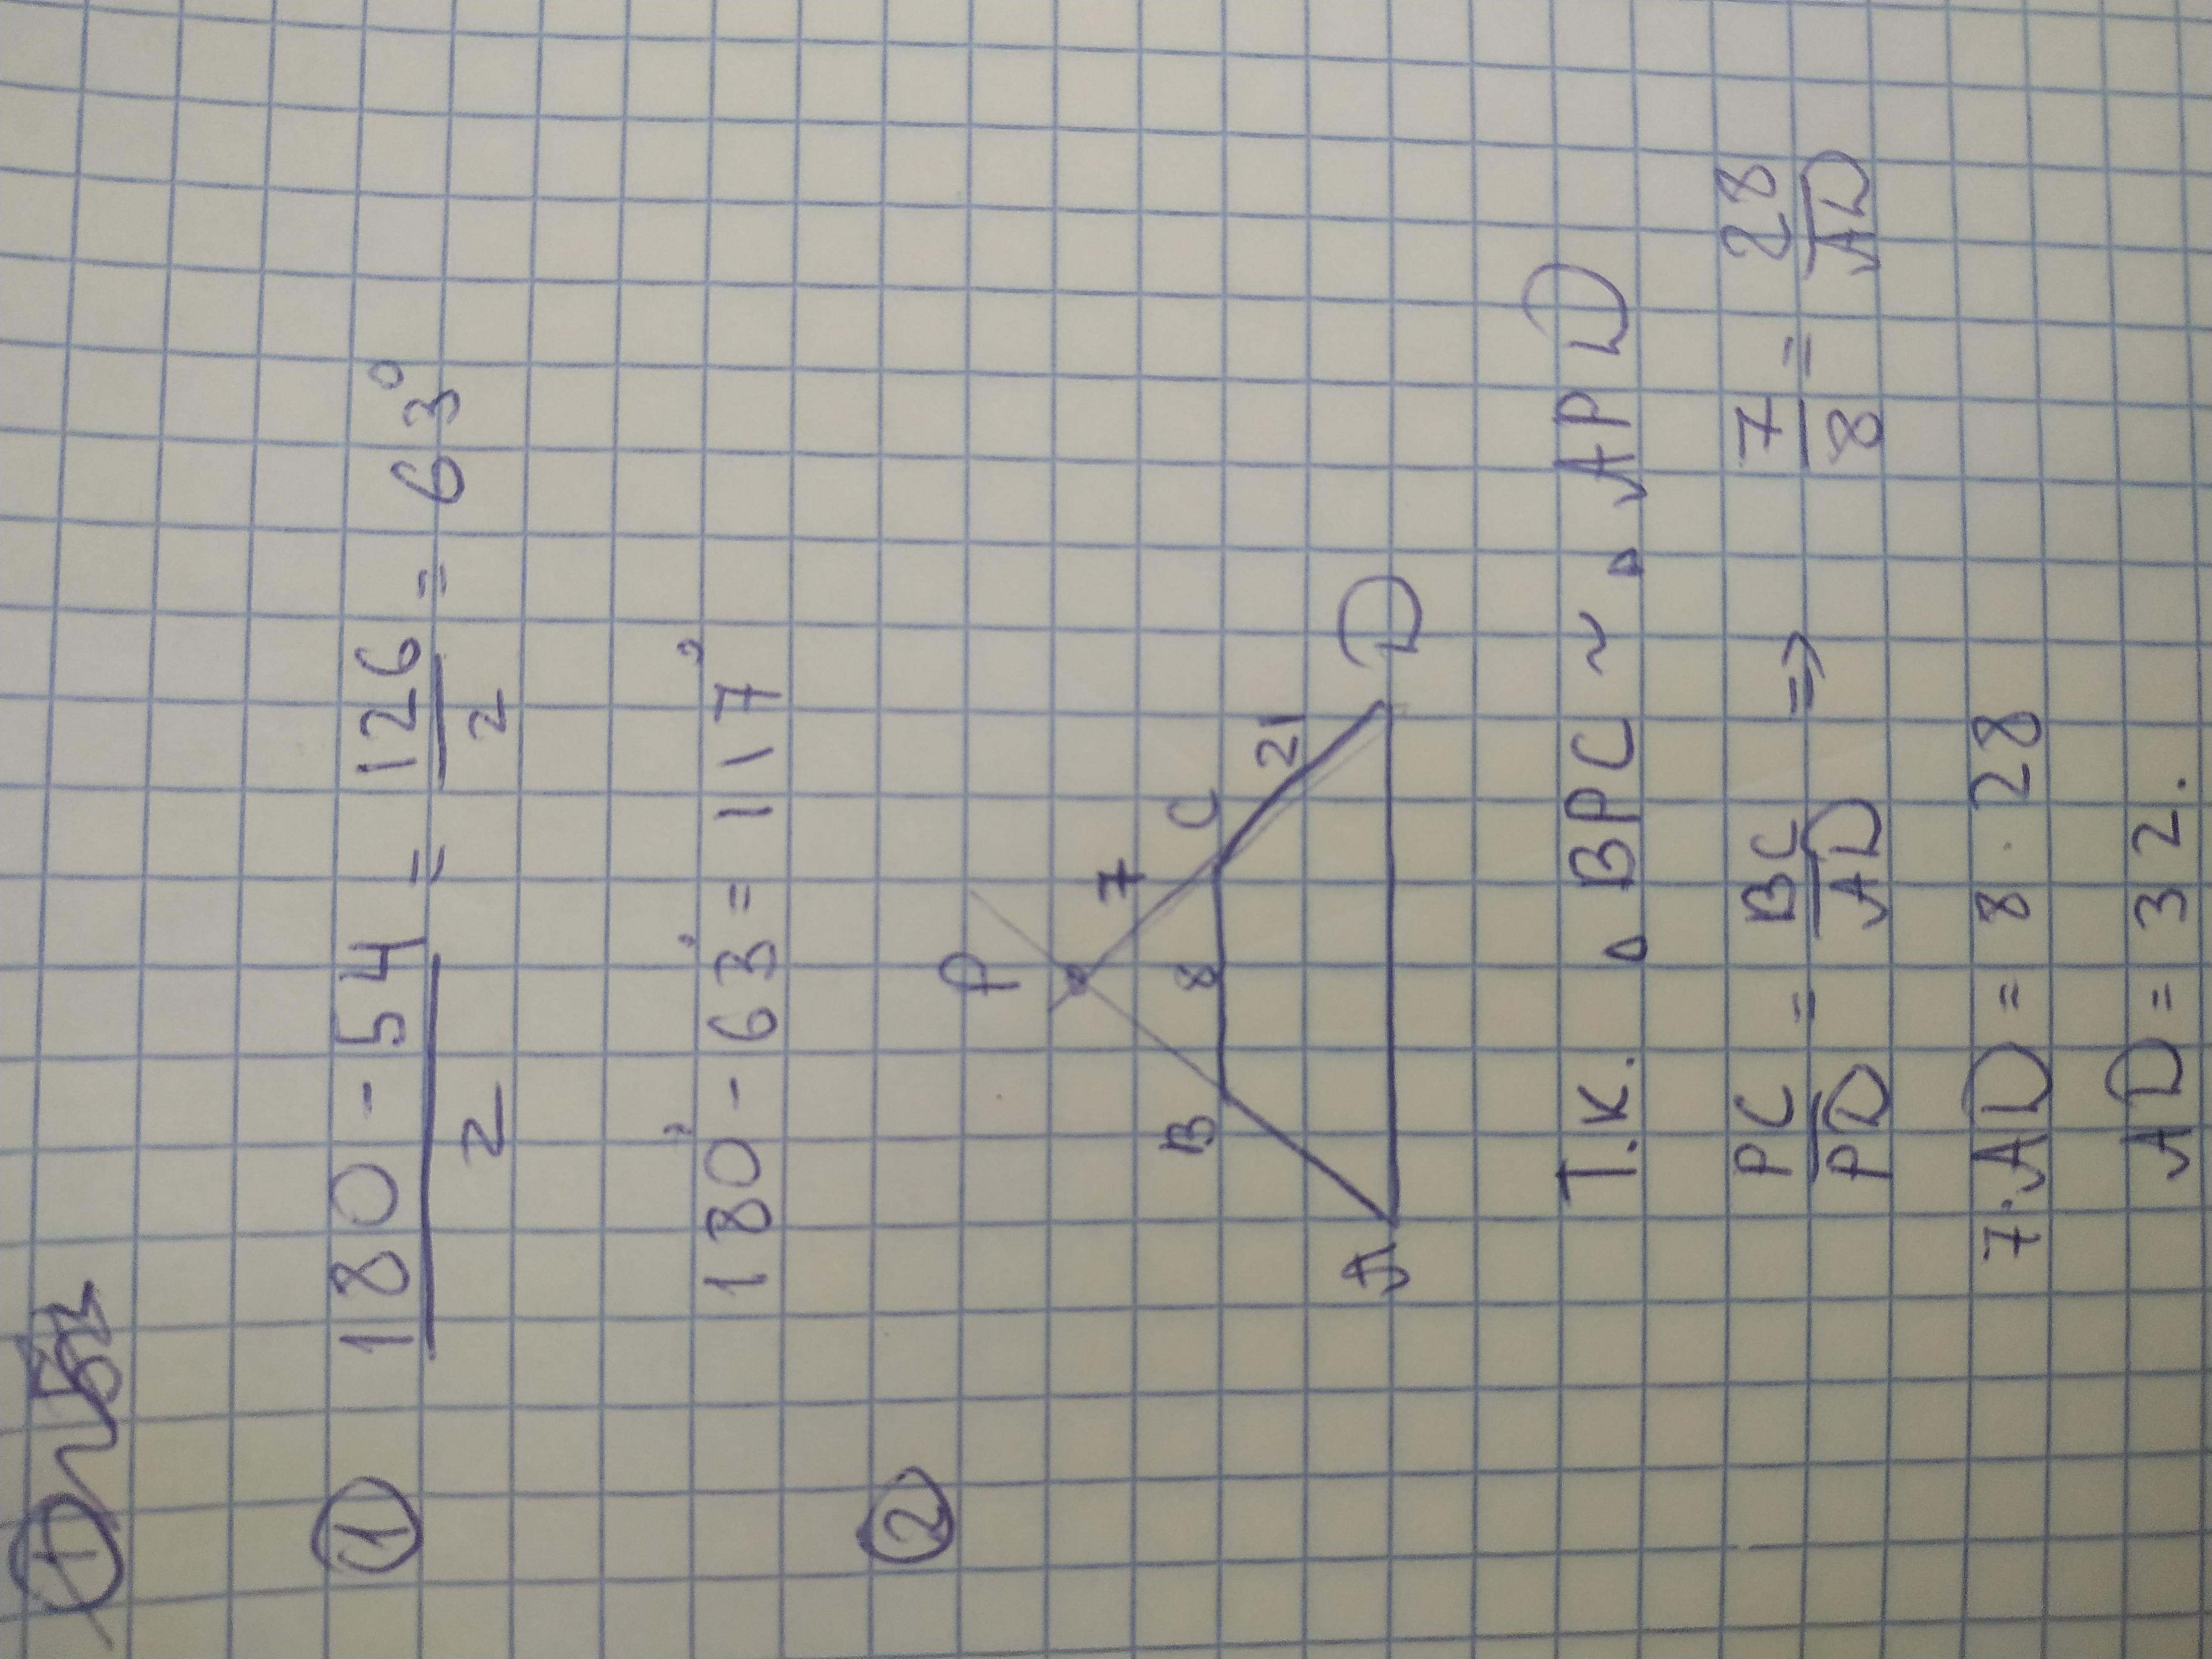 ①
① 180-54/2 = 126/2 = 63°
180°-63°=117°
②
P
7
B 8 C
21
A D
Т.к. △ BPC ~ △ APD
PC/PD = BC/AD => 7/8 = 28/AD
7·AD = 8·28
AD = 32.